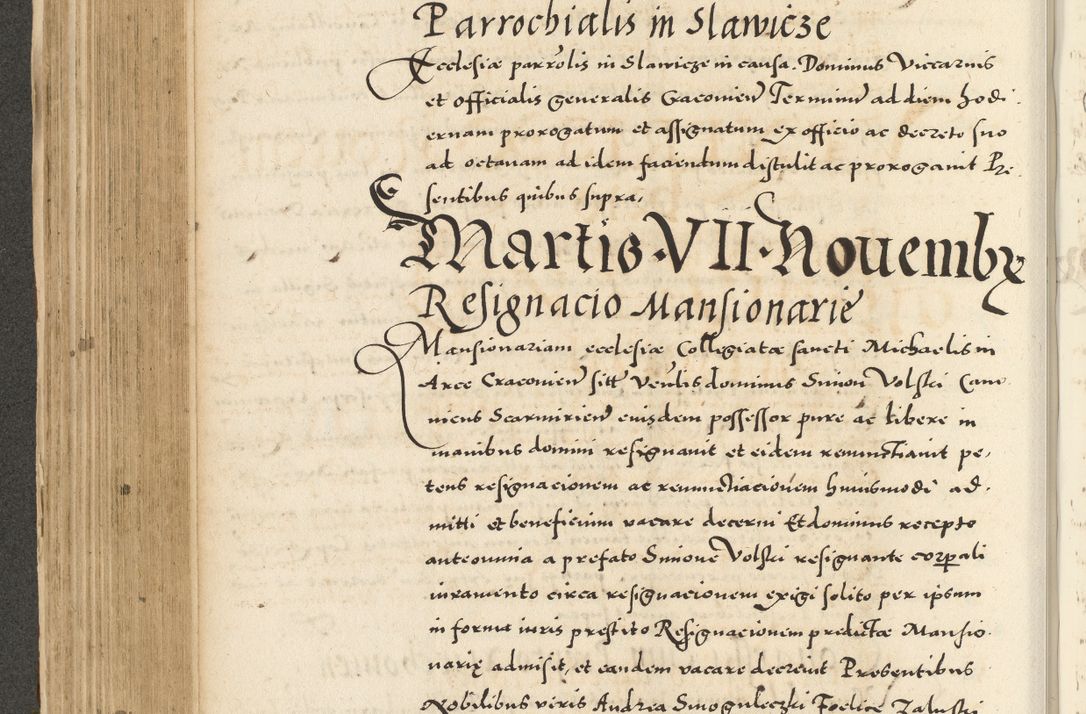 Parrochialis in Slawicze
Ecclesiæ parrolis in Slawicze in causa. Dominus Viccarius
et officialis generalis Cracovien Terminum ad diem hodi
ernam prorogatum et assignatum ex officio ac decreto suo
ad octauam ad idem faciendum distulit ac prorogauit Pre
sentibus quibus supra,
Martis · VII · Nouembr
Resignacio Mansionarie
Mansionariam ecclesiæ Collegiatæ sancti Michaelis in
Arce Cracovien sitt Venlis dominus Simon Volski Cano
nicus Scarmirien eiusdem possessor pure ac libere in
manibus domini resignauit et eidem renunctiauit pe,
tens resignacionem ac renunctiacionem huiusmodi ad,
mitti et beneficium vacare decerni Et dominus recepto
ante omnia a prefato Simone Volski resignante corporali
iuramento circa resignacionem exigi solito per ipsum
in forma iuris prestito Resignacionem predictæ Mansio
narię admisit, et eandem vacare decreuit Presentibus
Nobilibus viris Andrea Smoguleczki Foelice Zaluski